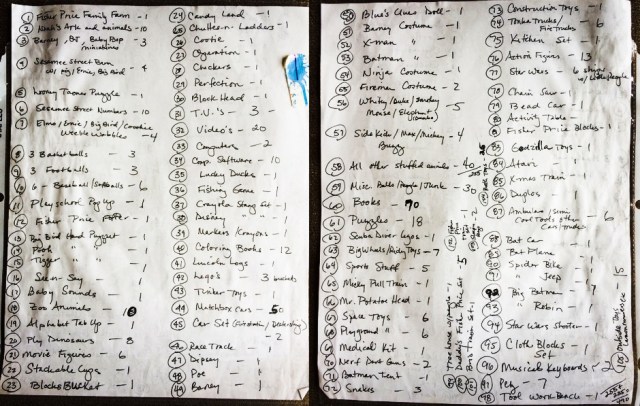 1 Fisher Price Family Farm - 1
2 Noah's Ark and animals - 10
3 Barney, BJ, Baby Bop - 3
miniatures
4 Sesamee Street Barn - 4
w/ pig/Ernie, Big Bird
5 Looney Toones Puzzle - 1
6 Sesamee Street Numbers - 10
7 Elmo/Ernie/Big Bird/Coookie
Weeble Wobbles - 4
8 3 Basketballs 3
9 3 Footballs - 3
10 6 - Baseball/Softballs - 6
11 Playschool Pop Up - 1
12 Fisher Price - 1
13 Big Bird Hand Puppet 1
14 Pooh " " 1
15 Tigger " " 1
16 See-n-Say - 1
17 Baby Sounds 1
18 Zoo Animals - 10
19 Alphabet Tab Up - 1
20 Play Dinosaurs - 8
21 Movie Figures - 6
22 Stackable Cups - 1
23 Blocks Bucket - 1
24 Candy Land - 1
25 Chutes-n-Ladders - 1
26 Cootie - 1
27 Operation - 1
28 Checkers - 1
29 Perfection - 1
30 Block Head - 1
31 T.V.'s - 3
32 Video's - 20
33 Computers - 2
34 Comp. Software - 10
35 Lucky Ducks - 1
36 Fishing Game - 1
37 Crayola Stang Set - 1
38 Disney
39 Markers/Crayons - 1
40 Coloring Books - 12
41 Lincoln Logs - 1
42 Lego's - 3 buckets
43 Tinker Toys - 1
44 Matchbox Cars - 50
45 Car Set - 2
46 Race Track - 2
47 Dipsey - 1
48 Poe - 1
49 Barney - 1
50 Blue's Clues Doll - 1
51 Barney Costume - 1
52 X-man " - 1
53 Batman " - 1
54 Ninja Costume - 1
55 Fireman Costume - 2
56 Whitey/Duke/Smokey - 5
Mouse/Elephant
57 Side Kicks/Max/Mickey - 4
Buggy
58 All other stuffed animals - 40
59 Misc. Balls/Jungle/Junk - 30
60 Books - 70
61 Puzzles - 18
62 Scuba Diver Legos - 1
63 Big Wheels/Riding Toys - 7
64 Sports Stuff - 5
65 Mickey Pull Train - 1
66 Mr. Potatoe Head - 1
67 Space Toys - 6
68 Playground " 6
69 Medical Kit - 1
70 Nerf Dart Guns - 2
71 Batman Tent - 1
72 Snakes - 3
73 Construction Toys - 1
74 Tonka Trucks/ - 6
Fire Trucks
75 Kitchen Set 1
76 Action Figures - 13
77 Star Wars - 6
78 Chain Saw - 1
79 Bead Car - 1
80 Activity Table - 1
Fisher Price Blocks - 1
83 Godzilla Toys - 1
84 Atari - 1
85 X-mas Train - 1
86 Duplos - 1
87 Ambulance/semi - 6
Car/Trucks
88 Bat Car
89 Bat Plane - 1
90 Spider Bike - 1
91 " Jeep - 1
92 Big Batman 7
93 " Robin
94 Star Wars Shooter - 1
95 Cloth Blocks - 1
Set
96 Musical Keyboards - 2
97 Pez - 7
98 Tool Work Bench - 1